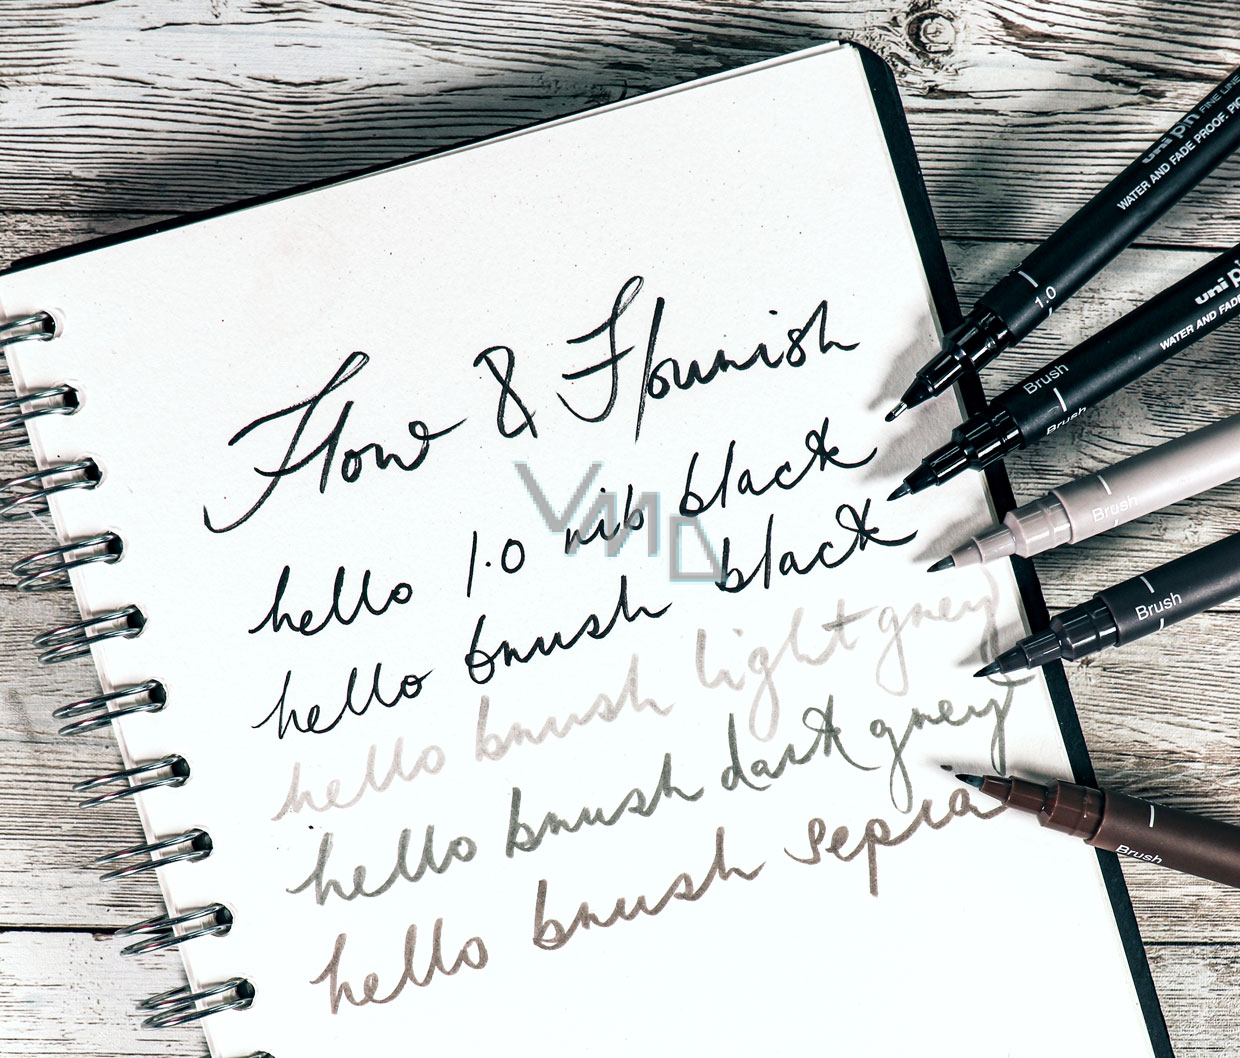 Flow & Flourish
hello 1.0 nib black
hello brush black
hello brush light grey
hello brush dark grey
hello brush sepia
VMD
uni pin FINE LINE
WATER AND FADE PROOF. PIG
1.0
uni pi
WATER AND FADE
Brush
Brush
Brush
Brush
Brush